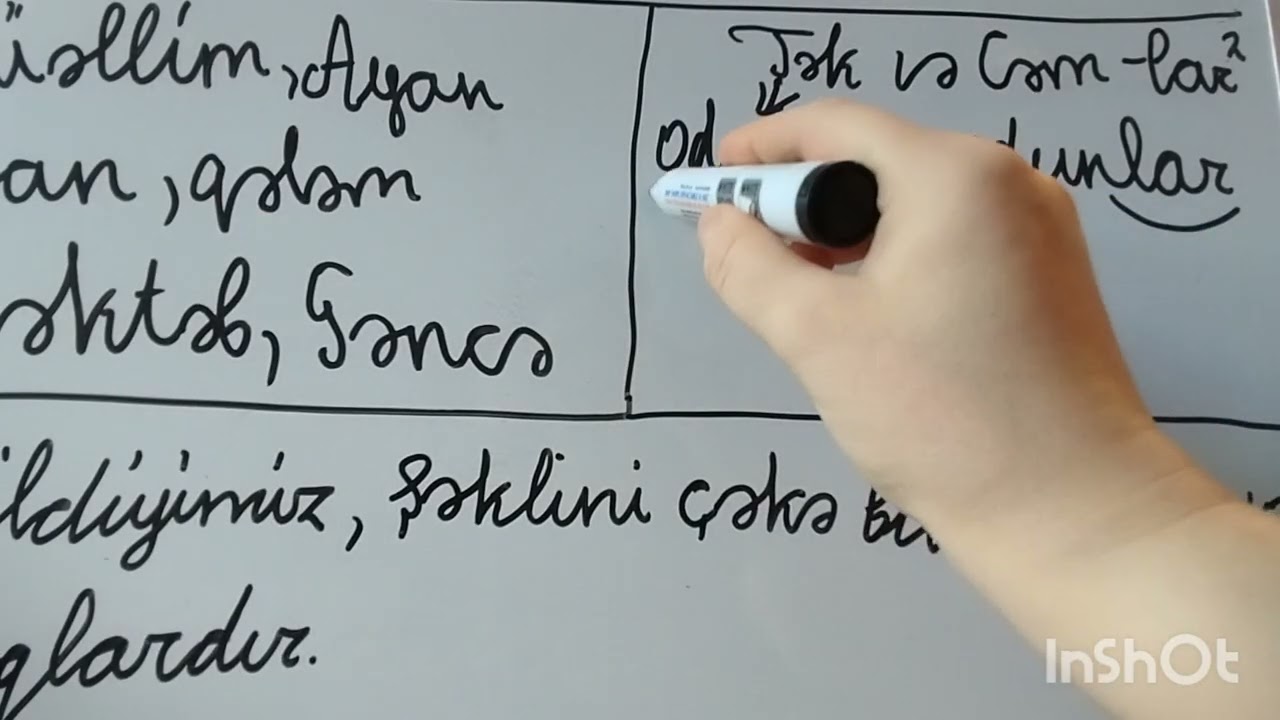 üəllim, Ayan
an, qələm
əktəb, Gəncə
Tək və Cəm -lar²
od
dunlar
ildiyimiz, şəklini çəkə
qlardır.
InShOt